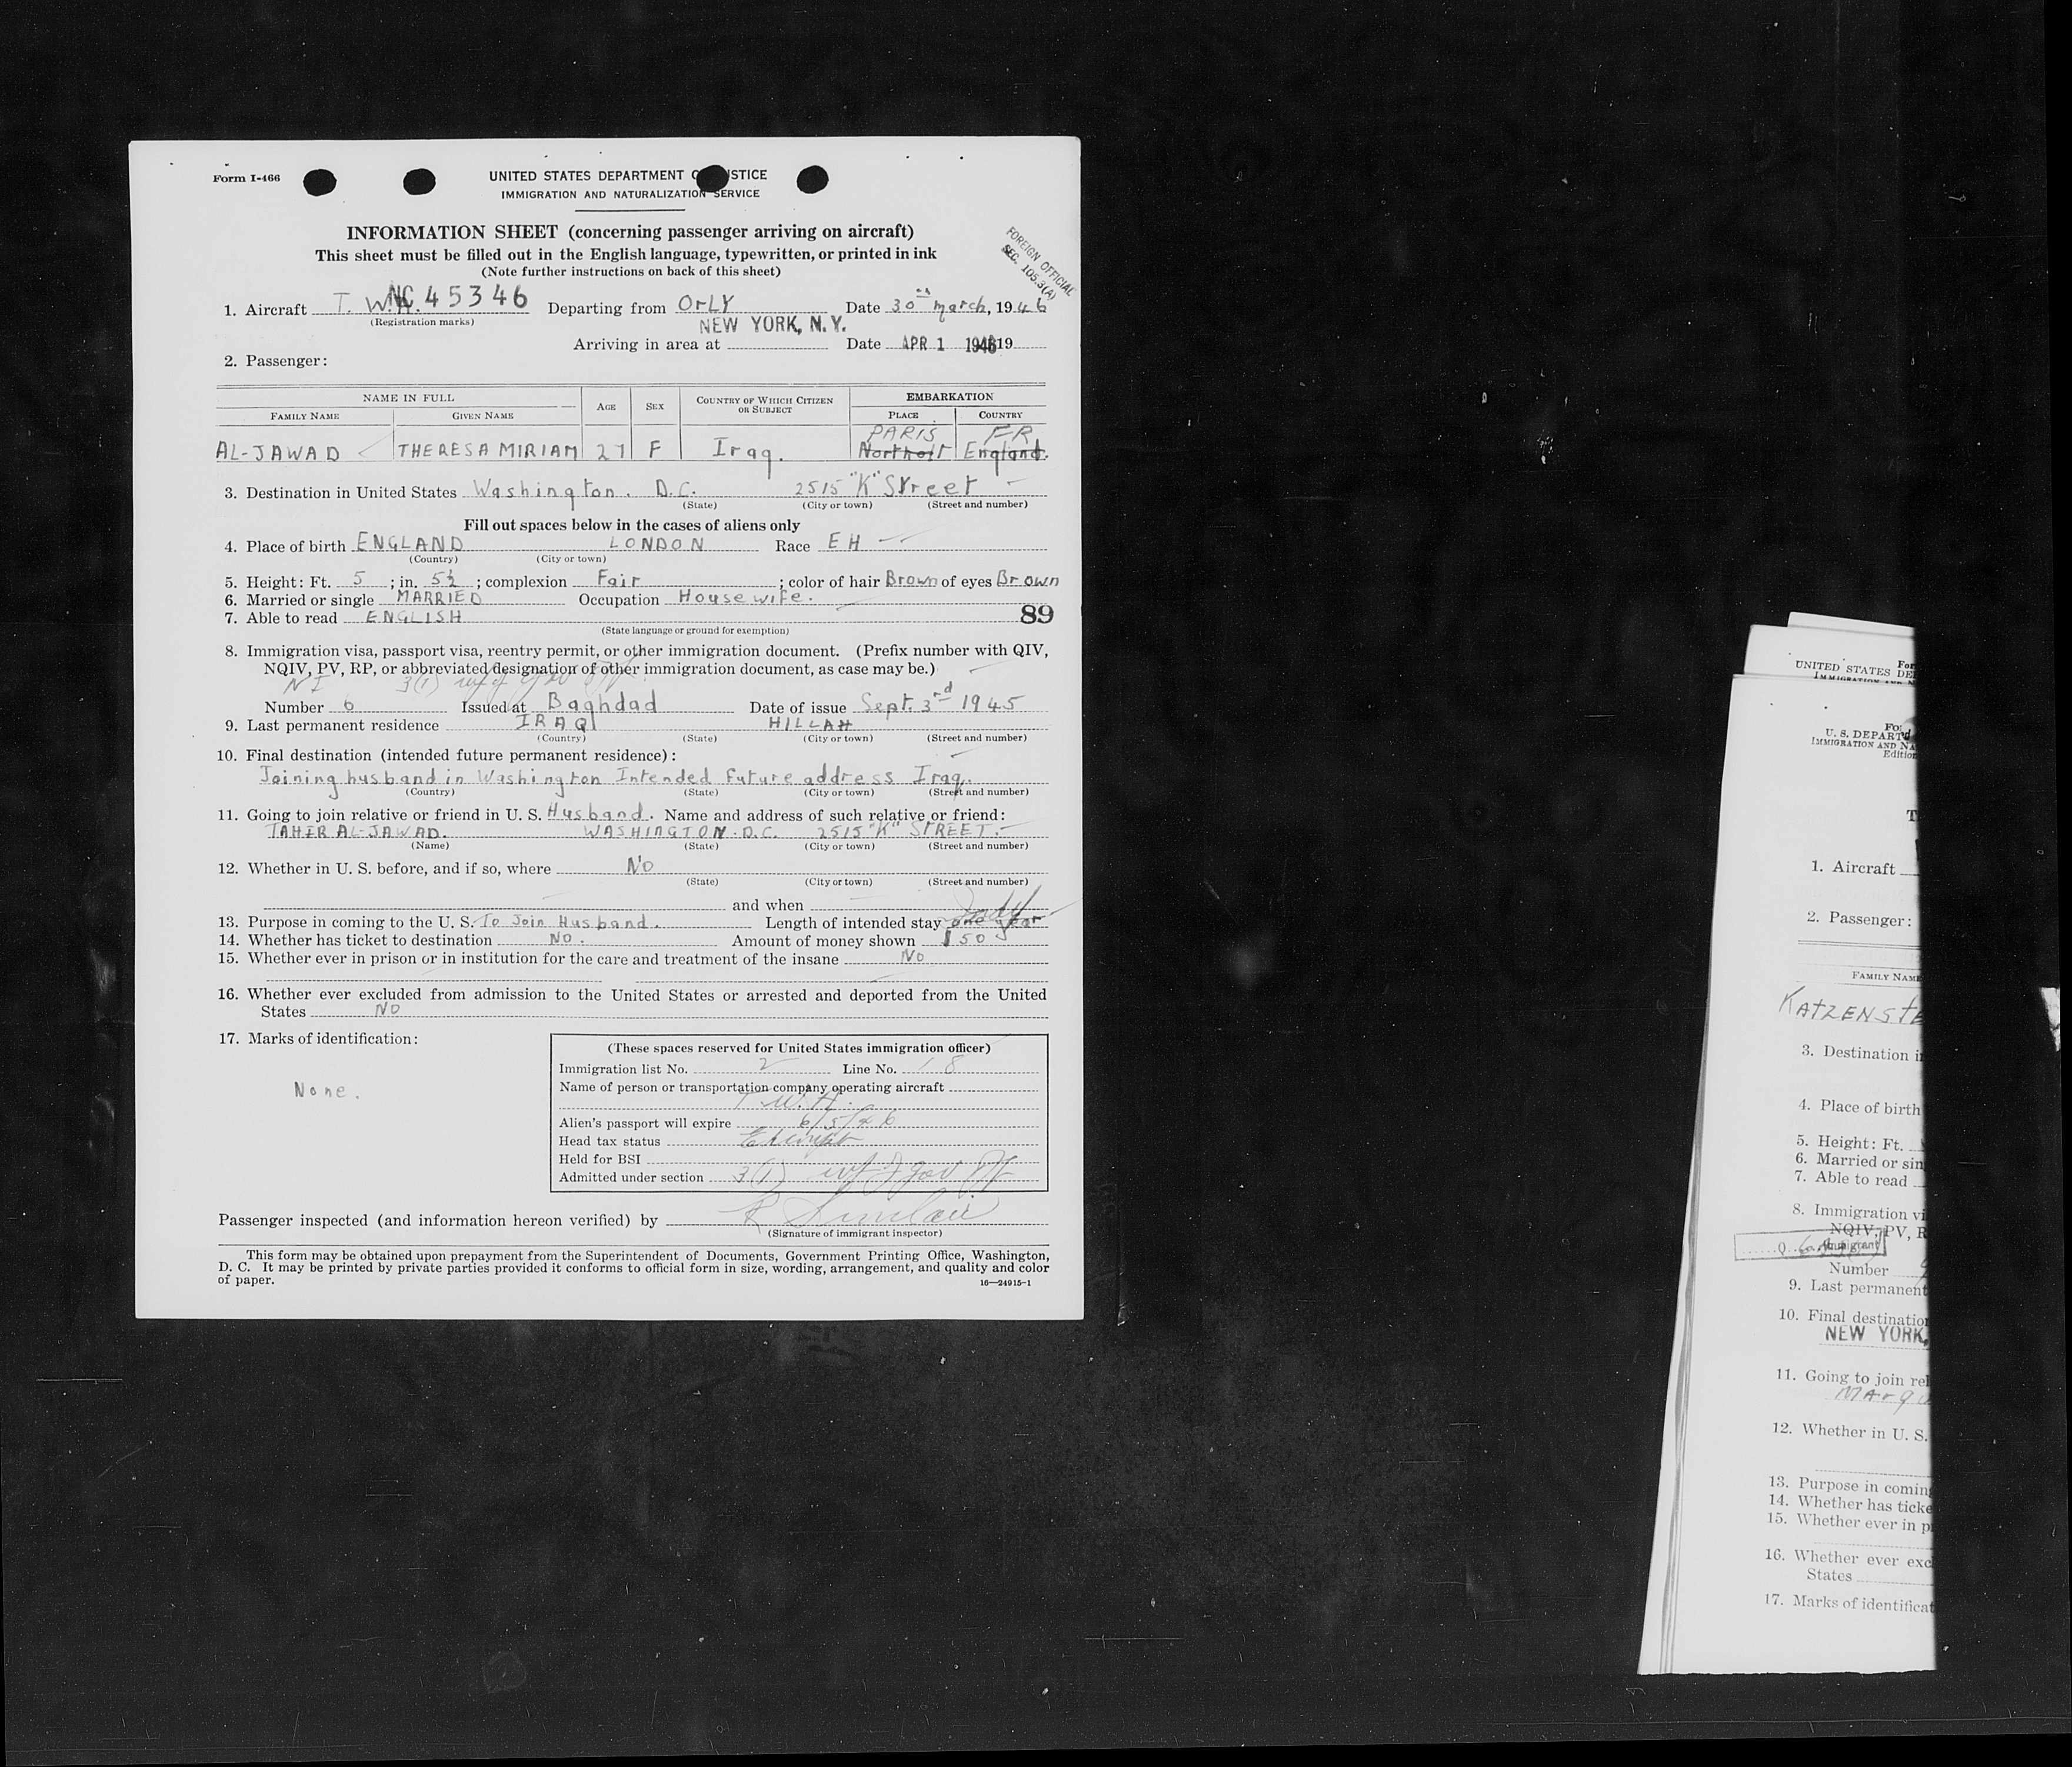 Form I-466
UNITED STATES DEPARTMENT O STICE
IMMIGRATION AND NATURALIZATION SERVICE
INFORMATION SHEET (concerning passenger arriving on aircraft)
This sheet must be filled out in the English language, typewritten, or printed in ink
(Note further instructions on back of this sheet)
FOREIGN OFFICIAL
SEC. 105.3(A)
1. Aircraft T. W.A. NC 45346 Departing from OrLY Date 30th march, 1946
(Registration marks)
NEW YORK, N.Y.
Arriving in area at Date APR 1 1946 19
2. Passenger:
NAME IN FULL AGE SEX COUNTRY OF WHICH CITIZEN OR SUBJECT EMBARKATION
FAMILY NAME GIVEN NAME PLACE COUNTRY
PARIS FR
AL-JAWAD THERESA MIRIAM 27 F Iraq. Northolt England.
3. Destination in United States Washington. D.C. 2515 "K" Street
(State) (City or town) (Street and number)
Fill out spaces below in the cases of aliens only
4. Place of birth ENGLAND LONDON Race EH
(Country) (City or town)
5. Height: Ft. 5; in. 5½; complexion Fair; color of hair Brown of eyes Brown
6. Married or single MARRIED Occupation Housewife.
7. Able to read ENGLISH 89
(State language or ground for exemption)
8. Immigration visa, passport visa, reentry permit, or other immigration document. (Prefix number with QIV,
NQIV, PV, RP, or abbreviated designation of other immigration document, as case may be.)
NI 3(1) wf of gov
Number 6 Issued at Baghdad Date of issue Sept. 3rd 1945
9. Last permanent residence IRAQ HILLAH
(Country) (State) (City or town) (Street and number)
10. Final destination (intended future permanent residence):
Joining husband in Washington Intended future address Iraq.
(Country) (State) (City or town) (Street and number)
11. Going to join relative or friend in U. S. Husband. Name and address of such relative or friend:
TAHIR AL-JAWAD. WASHINGTON. D.C. 2515 "K" STREET.
(Name) (State) (City or town) (Street and number)
12. Whether in U. S. before, and if so, where No
(State) (City or town) (Street and number)
and when
13. Purpose in coming to the U. S. To Join Husband. Length of intended stay one year
14. Whether has ticket to destination NO. Amount of money shown $50
15. Whether ever in prison or in institution for the care and treatment of the insane No
16. Whether ever excluded from admission to the United States or arrested and deported from the United
States NO
17. Marks of identification:
None.
(These spaces reserved for United States immigration officer)
Immigration list No. 2 Line No. 18
Name of person or transportation company operating aircraft
T.W.A.
Alien's passport will expire 6/5/46
Head tax status Exempt
Held for BSI
Admitted under section 3(1) wf of gov
Passenger inspected (and information hereon verified) by R Sinclair
(Signature of immigrant inspector)
This form may be obtained upon prepayment from the Superintendent of Documents, Government Printing Office, Washington,
D. C. It may be printed by private parties provided it conforms to official form in size, wording, arrangement, and quality and color
of paper. 16—24915-1
UNITED STATES DE
For
U. S. DEPART
IMMIGRATION AND NA
Edition
1. Aircraft
2. Passenger:
FAMILY NAME
KATZENSTE
3. Destination i
4. Place of birth
5. Height: Ft.
6. Married or sin
7. Able to read
8. Immigration vi
NQIV, PV, R
Immigrant
Number
9. Last permanent
10. Final destination
NEW YORK,
11. Going to join rel
Marg
12. Whether in U. S.
13. Purpose in coming
14. Whether has ticke
15. Whether ever in p
16. Whether ever exc
States
17. Marks of identificat